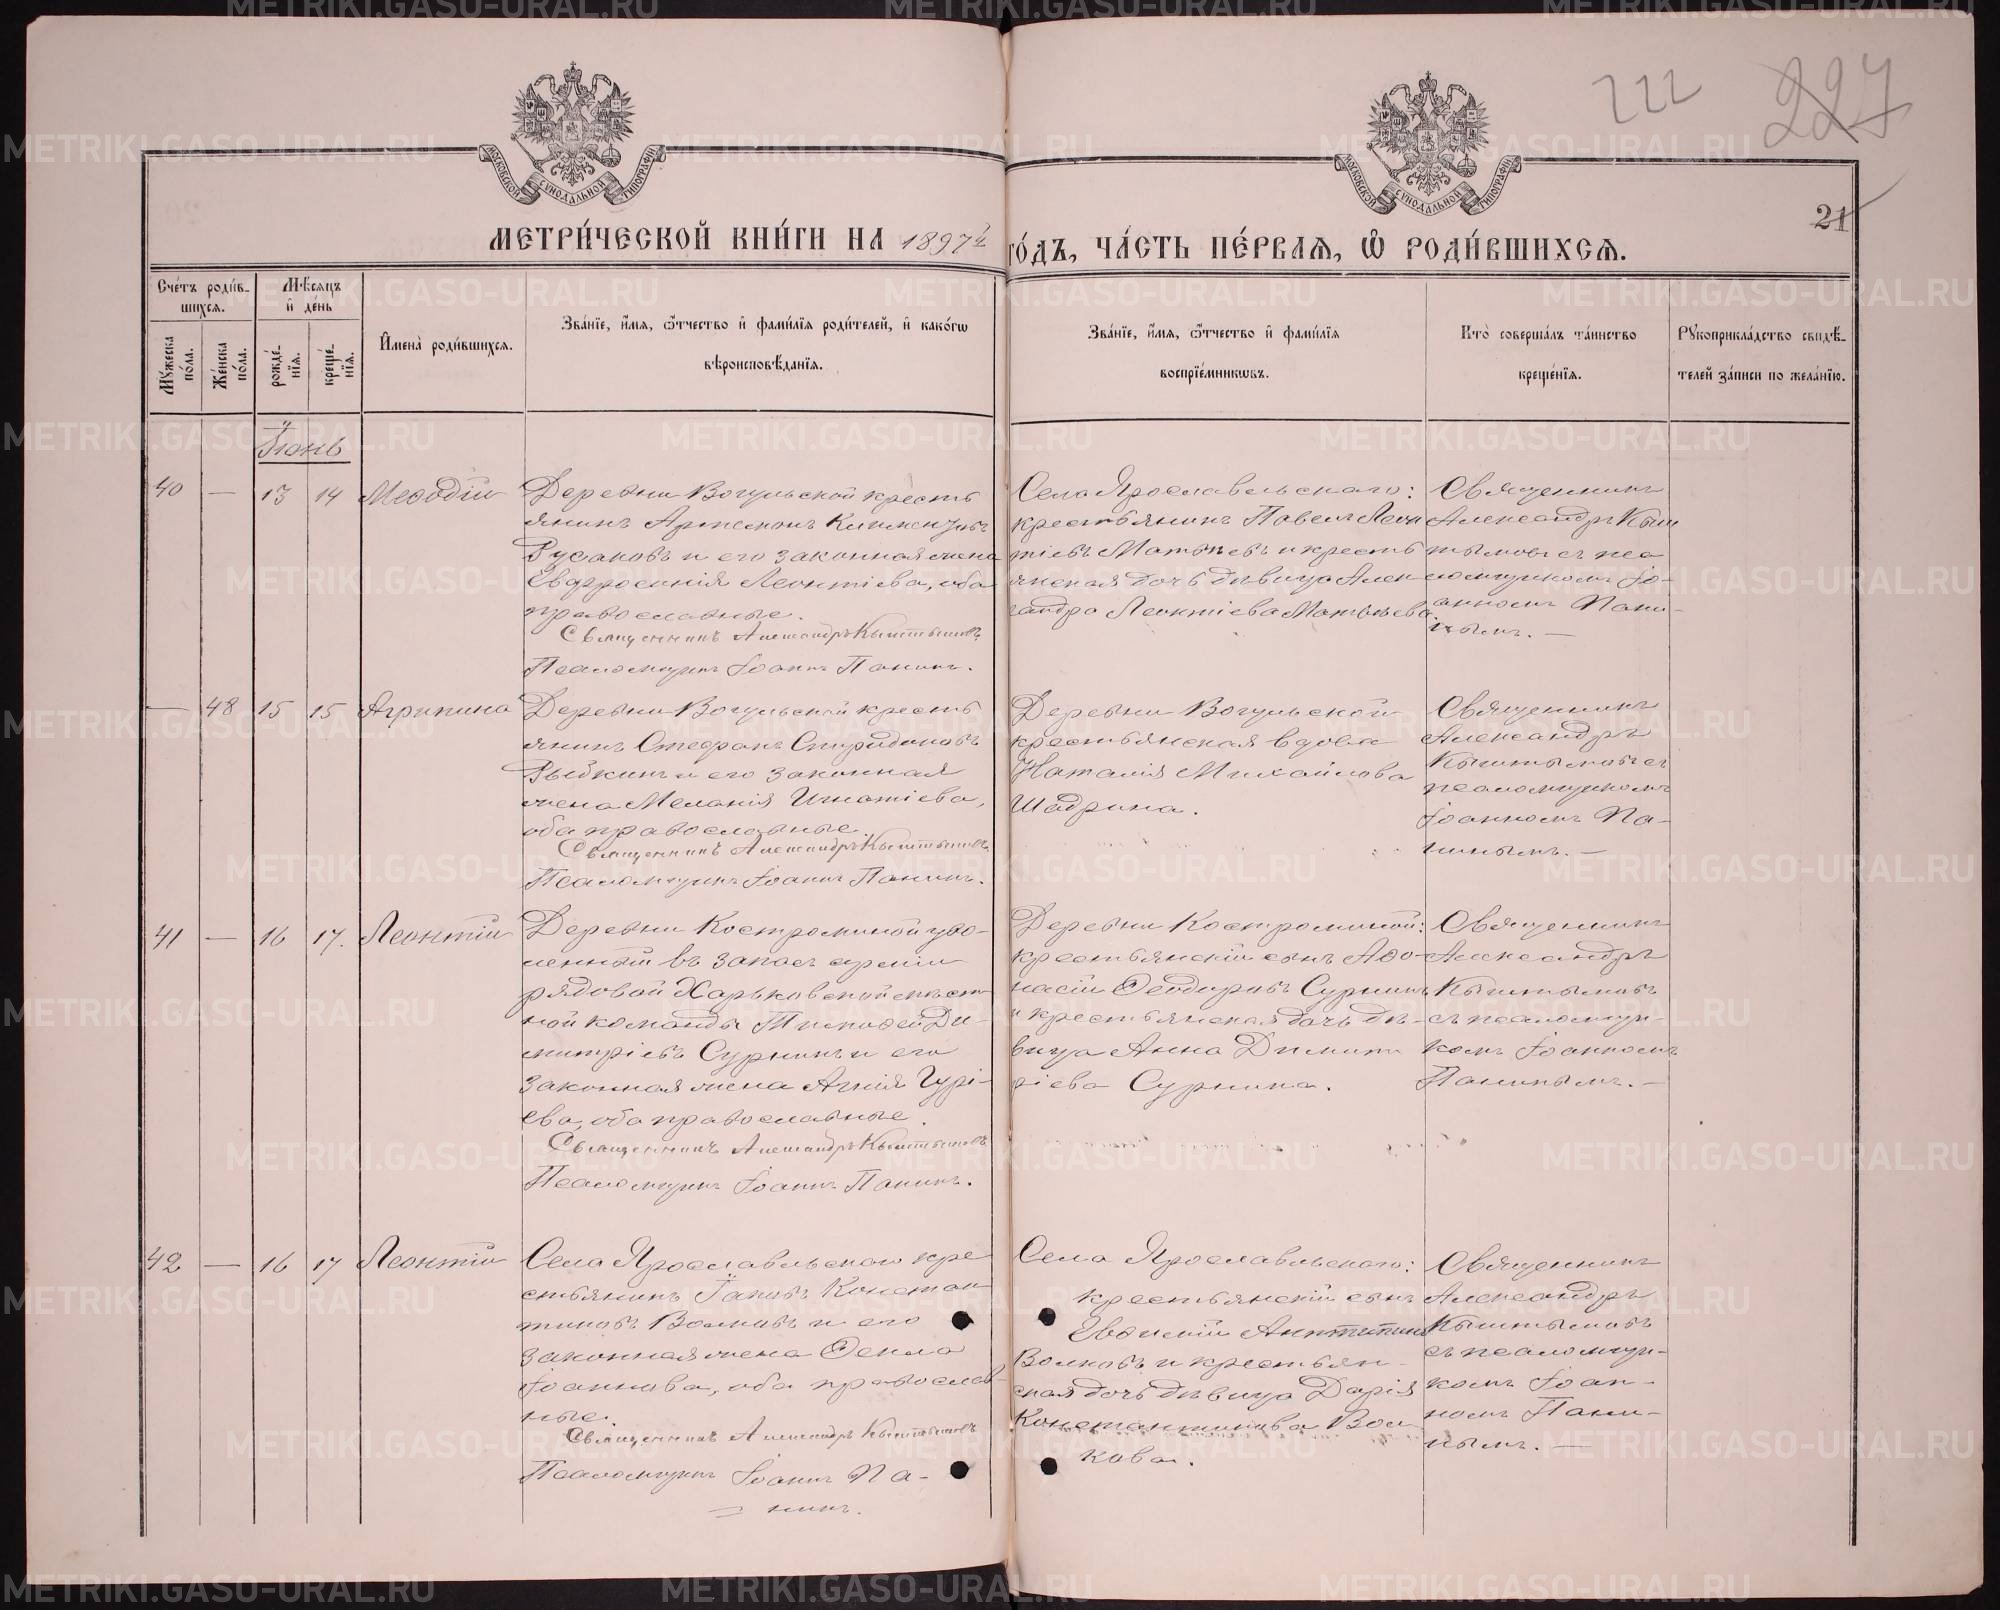 222
227
МОСКОВСКОЙ СѴНОДАЛЬНОЙ ТИПОГРАФІИ
МОСКОВСКОЙ СѴНОДАЛЬНОЙ ТИПОГРАФІИ
21
МЕТРИ́ЧЕСКОЙ КНИ́ГИ НА 1897й
ГО́ДЪ, ЧА́СТЬ ПЕ́РВАЯ, Ѡ РОДИ́ВШИХСЯ.
Сче́тъ роди́в-
шихся.
Мѣ́сяцъ
и҆ де́нь
Мꙋжеска по́ла.
Же́нска по́ла.
рожде́-
нїя.
креще́-
нїя.
И҆мена̀ роди́вшихся.
Зва́нїе, и҆́мя, ѻ҆́тчество и҆ фамі́лїя роди́телей, и҆ како́гѡ
вѣроисповѣ́данїя.
Зва́нїе, и҆́мя, ѻ҆́тчество и҆ фамі́лїя
воспрїе́мниковъ.
Кто̀ соверша́лъ та́инство
креще́нїя.
Рꙋкоприкла́дство свидѣ́-
телей за́писи по жела́нїю.
Іюнь
40 — 13 14 Меѳодій
Деревни Вогульской кресть
янинъ Артемонъ Климентовъ
Русаковъ и его законная жена
Евдросинія Леонтіева, оба
православные.
Священникъ Александръ Кыштымовъ
Псаломщикъ Іоаннъ Панинъ.
Села Ярославльскаго:
крестьянинъ Павелъ Леон
тіевъ Матвѣевъ и кресть
янская дочь дѣвица Алек-
сандра Леонтіева Матвѣева.
Священникъ
Александръ Кыш
тымовъ съ пса
ломщикомъ Іо-
анномъ Пани-
нымъ. —
— 48 15 15 Агрипина
Деревни Вогульской кресть
янинъ Стефанъ Спиридоновъ
Рыбкинъ и его законная
жена Меланія Игнатіева,
оба православные.
Священникъ Александръ Кыштымовъ
Псаломщикъ Іоаннъ Панинъ.
Деревни Вогульской
крестьянская вдова
Наталія Михайлова
Шадрина.
Священникъ
Александръ
Кыштымовъ съ
псаломщикомъ
Іоанномъ Па-
нинымъ. —
41 — 16 17. Леонтій
Деревни Костроминой уво-
ленный въ запасъ арміи
рядовой Харьковской мѣст
ной команды Тимоѳей Ди-
митріевъ Суркинъ и его
законная жена Агнія Гурі-
ева, оба православные.
Священникъ Александръ Кыштымовъ
Псаломщикъ Іоаннъ Панинъ.
Деревни Костроминой:
крестьянскій сынъ Аѳо-
насій Ѳеодоровъ Суркинъ
и крестьянская дочь дѣ-
вица Анна Димит
ріева Суркина.
Священникъ
Александръ
Кыштымовъ
съ псаломщи-
комъ Іоанномъ
Панинымъ. —
42 — 16 17 Леонтій
Села Ярославльскаго кре
стьянинъ Іаковъ Констан
тиновъ Волковъ и его
законная жена Ѳекла
Іоаннова, оба православ-
ные.
Священникъ Александръ Кыштымовъ
Псаломщикъ Іоаннъ Па-
нинъ.
Села Ярославльскаго:
крестьянскій сынъ
Евѳимій Антипинъ
Волковъ и крестьян-
ская дочь дѣвица Дарія
Константинова Вол
кова.
Священникъ
Александръ
Кыштымовъ
съ псаломщи-
комъ Іоан-
номъ Пани-
нымъ. —
METRIKI.GASO-URAL.RU